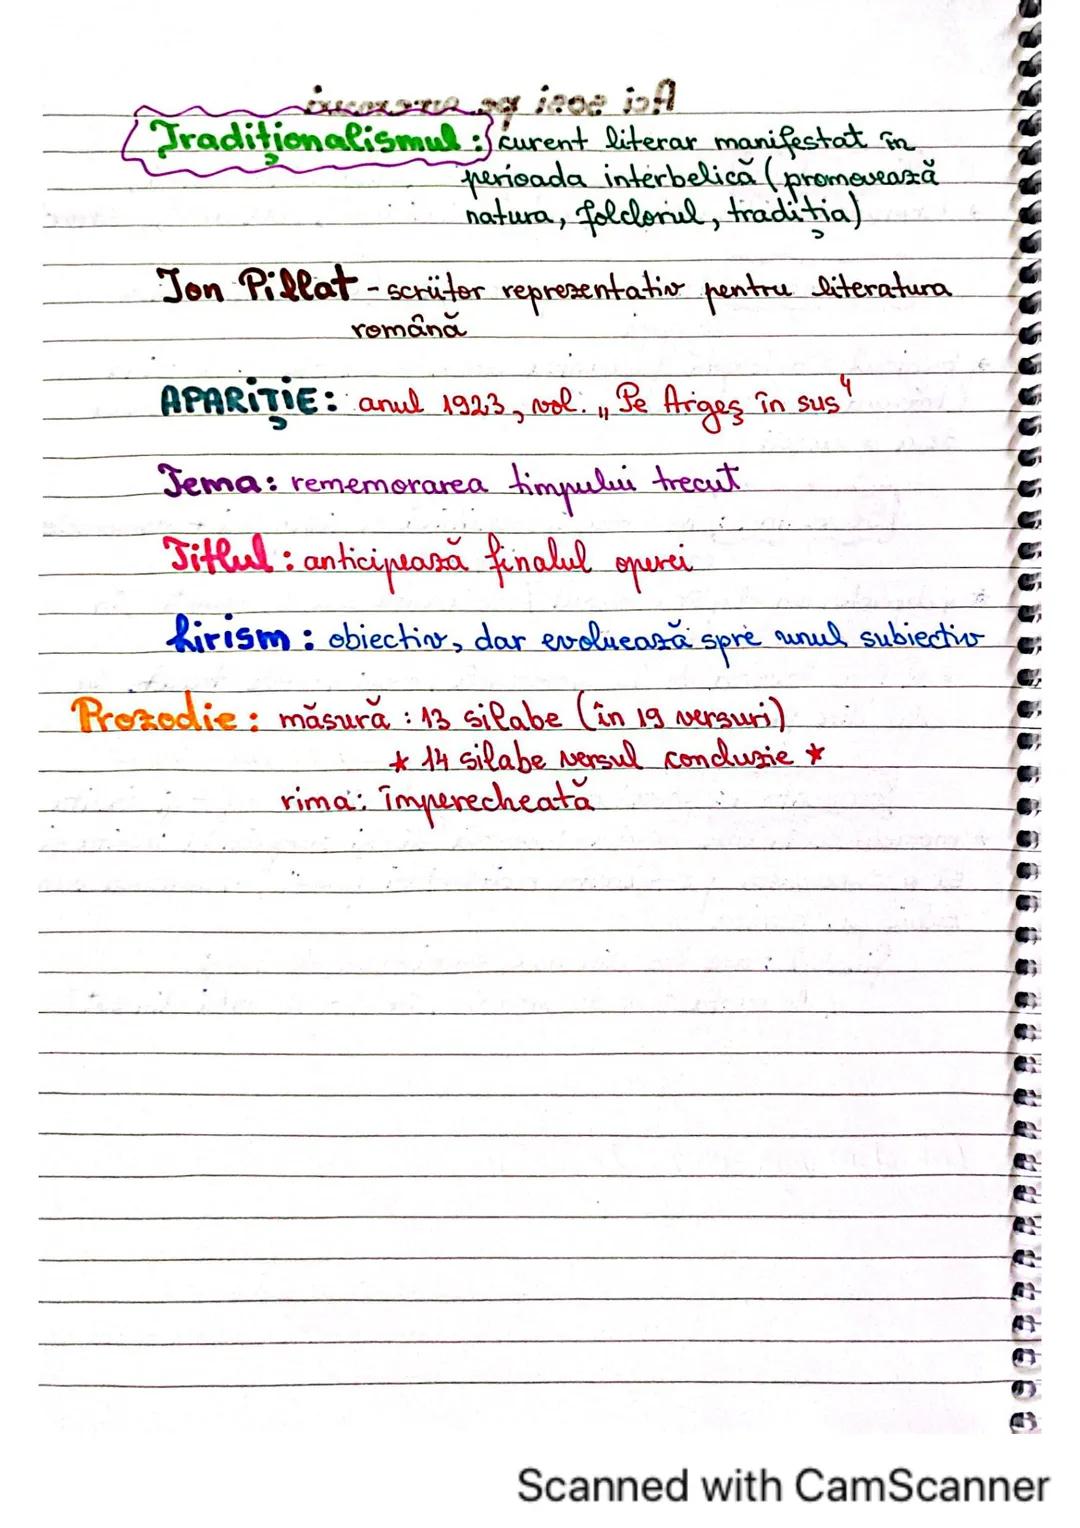 Aci sosi pe vremuri
Tradiționalismul : curent literar manifestat în
perioada interbelică (promovează
natura, folclorul, tradiția)
Ion Pillat - scriitor reprezentativ pentru literatura
română
APARIȚIE: anul 1923, vol. „Pe Argeș în sus"
Tema: rememorarea timpului trecut
Titlul : anticipează finalul operei
Lirism : obiectiv, dar evoluează spre unul subiectiv
Prozodie : măsură : 13 silabe (în 19 versuri)
* 14 silabe versul concluzie *
rima: împerecheată
Scanned with CamScanner